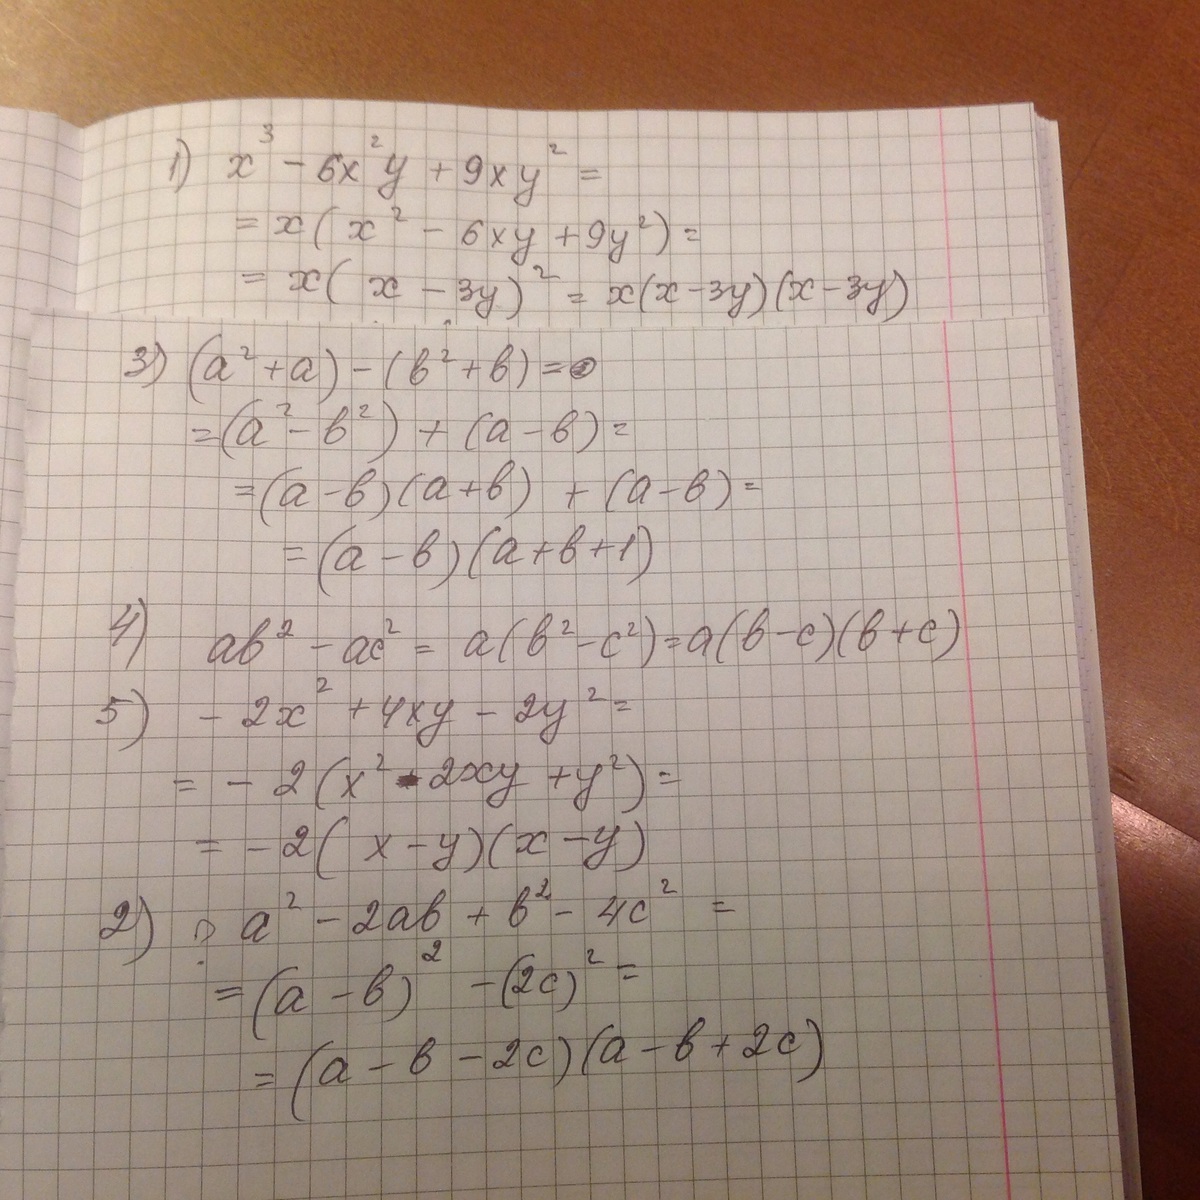 1) x³ - 6x²y + 9xy² =
= x(x² - 6xy + 9y²) =
= x(x - 3y)² = x(x-3y)(x-3y)
3) (a² + a) - (в² + в) =
= (a² - в²) + (a - в) =
= (a - в)(a + в) + (a - в) =
= (a - в)(a + в + 1)
4) aв² - ac² = a(в² - c²) = a(в - c)(в + c)
5) - 2x² + 4xy - 2y² =
= - 2(x² - 2xy + y²) =
= - 2(x - y)(x - y)
2) a² - 2aв + в² - 4c² =
= (a - в)² - (2c)² =
= (a - в - 2c)(a - в + 2c)